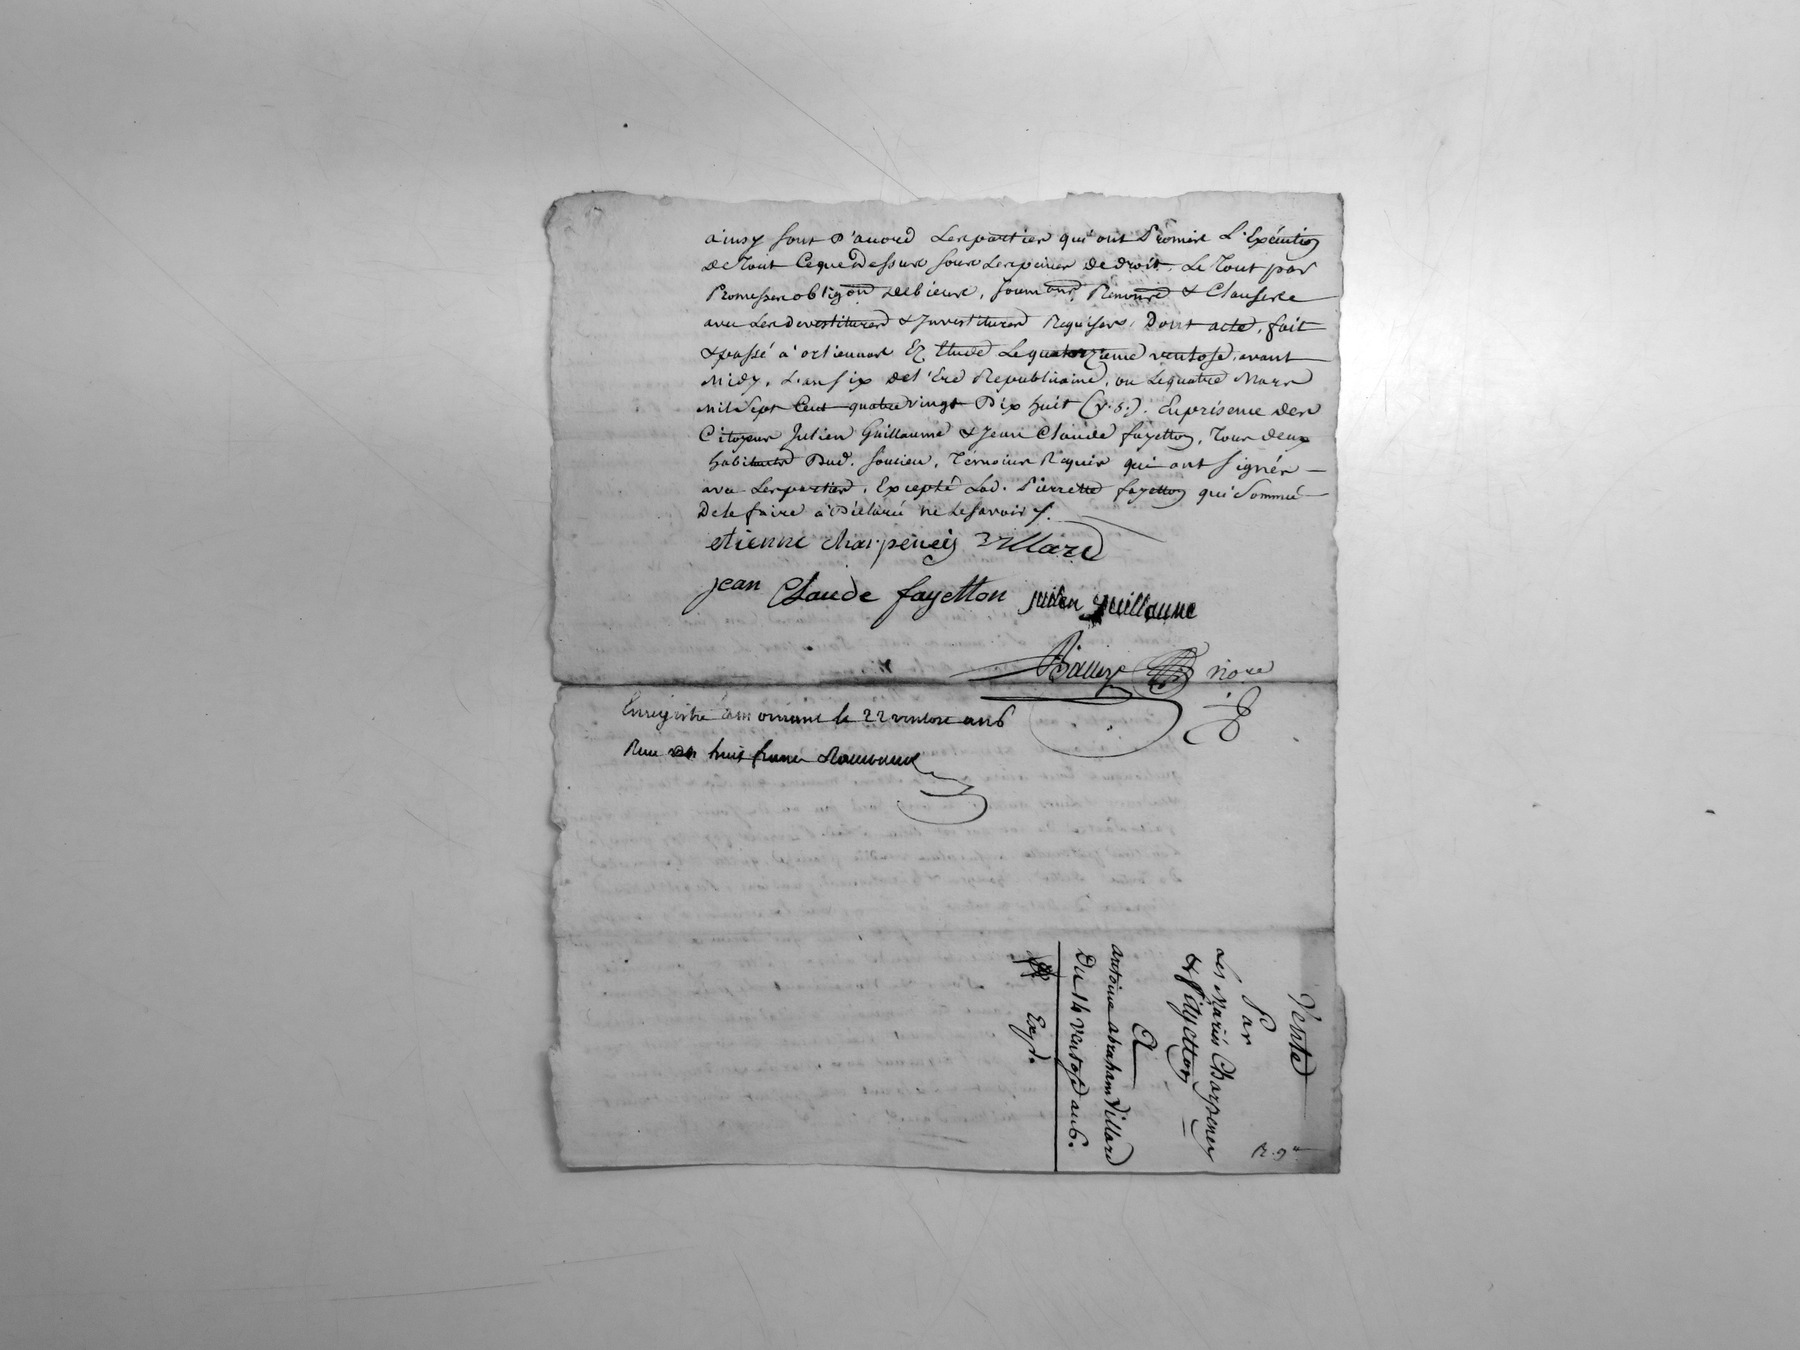 ainsy sont D'accord Les parties qui ont Promis L'Exécution
De Tout Ceque Dessus sous Les peines de droit. Le Tout par
Promesses obligõn de biens, soumõns, Renoncõns & Clauses
avec Les devestitures & Investitures Requises, Dont acte, fait
& passé à Et Etude Le quatorzieme ventose, avant
Midy, L'an six de l'Ere Republicaine, ou Le quatre Mars
Mil Sept Cent quatre vingt Dix huit (v.s.). En présence des
Citoyens Julien Guillaume & Jean Claude fayetton, Tous deux
habitants Dud. Témoins Requis qui ont signés
avec Les parties, Excepté Lad. Pierrette fayetton qui Sommée
De le faire a Déclaré ne Le savoir /.
etienne charpeney Villard
jean Claude fayetton julien guillaume
nore
Enregistré à le 22 ventose an 6
Reçu huit francs
Vente
Par
Les Mariés Charpeney
& fayetton
A
antoine abraham Villard
Du 14 Ventose an 6.
Exp.